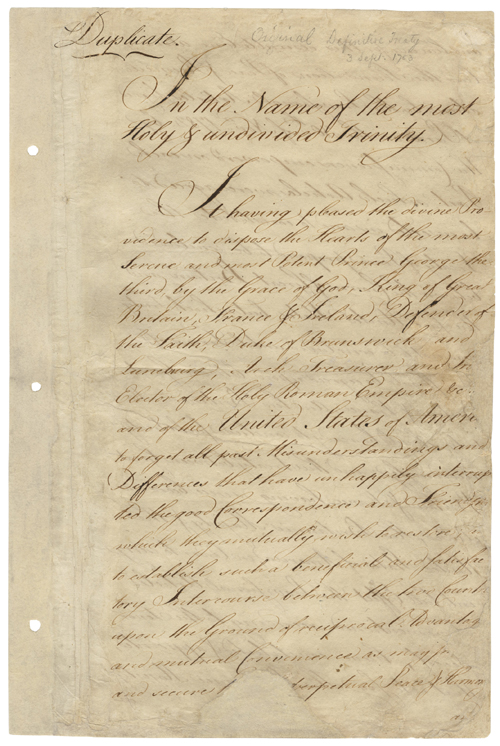 Duplicate.
Original Definitive Treaty
3 Sept. 1783
In the Name of the most
Holy & undivided Trinity.
It having pleased the divine Pro
vidence to dispose the Hearts of the most
Serene and most Potent Prince George the
third, by the Grace of God, King of Great
Britain, France & Ireland, Defender of
the Faith, Duke of Brunswick and
Lunebourg, Arch Treasurer and
Elector of the Holy Roman Empire &c.
and of the United States of Ameri
to forget all past Misunderstandings and
Differences that have unhappily interrup
ted the good Correspondence and Friendship
which they mutually wish to restore;
to establish such a beneficial and satisfac
tory Intercourse between the two Count
upon the Ground of reciprocal Advantag
and mutual Convenience as may
and secure perpetual Peace & Harmo